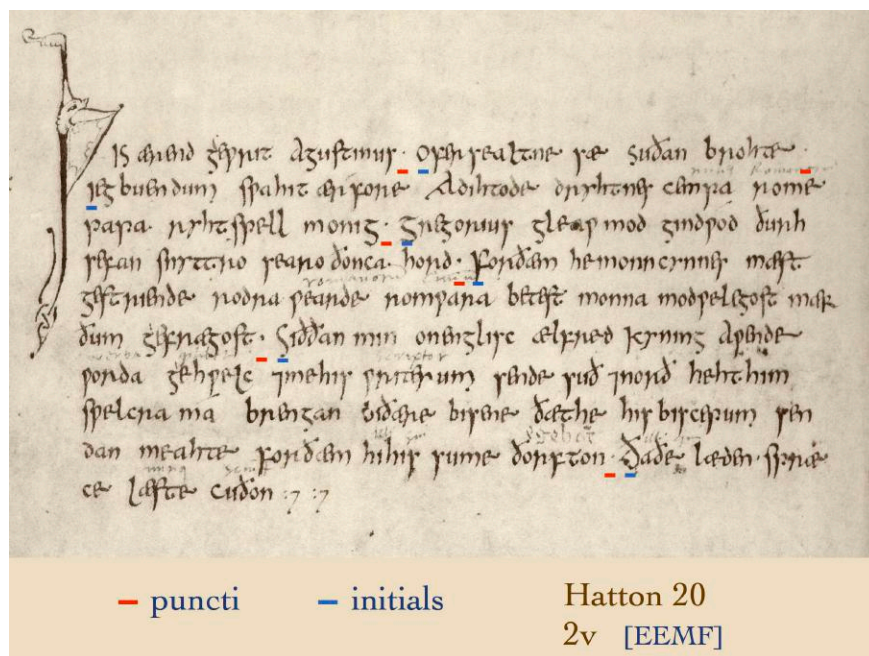 Þis ærend geƿrit Agustinus · ofer sealtne sæ suðan brohte ·
iegbuendum sƿahit ærfore Adihtode dryhtnes cempa rome
papa · ryhtspell monig · Gregorius gleaƿ mod gindƿod ðurh
sefan snyttro searo ðonca · hord · Forðæm hemonncynnes mæst
gestriende rodra ƿearde romƿara betest monna modƿelegost mær
ðum gefrægost · Siððan min onenglisc ælfred kyning aƿende
ƿorda gehƿelc ⁊mehis ƿriterum sende suð ⁊norð hehthim
sƿelcra ma brengan biðære bisene ðæthe his biscepum sen
dan meahte forðæm hihis sume ðorfton · Ðaðe læden · spræ
ce læste cuðon :⁊ :⁊
puncti
initials
Hatton 20
2v [EEMF]